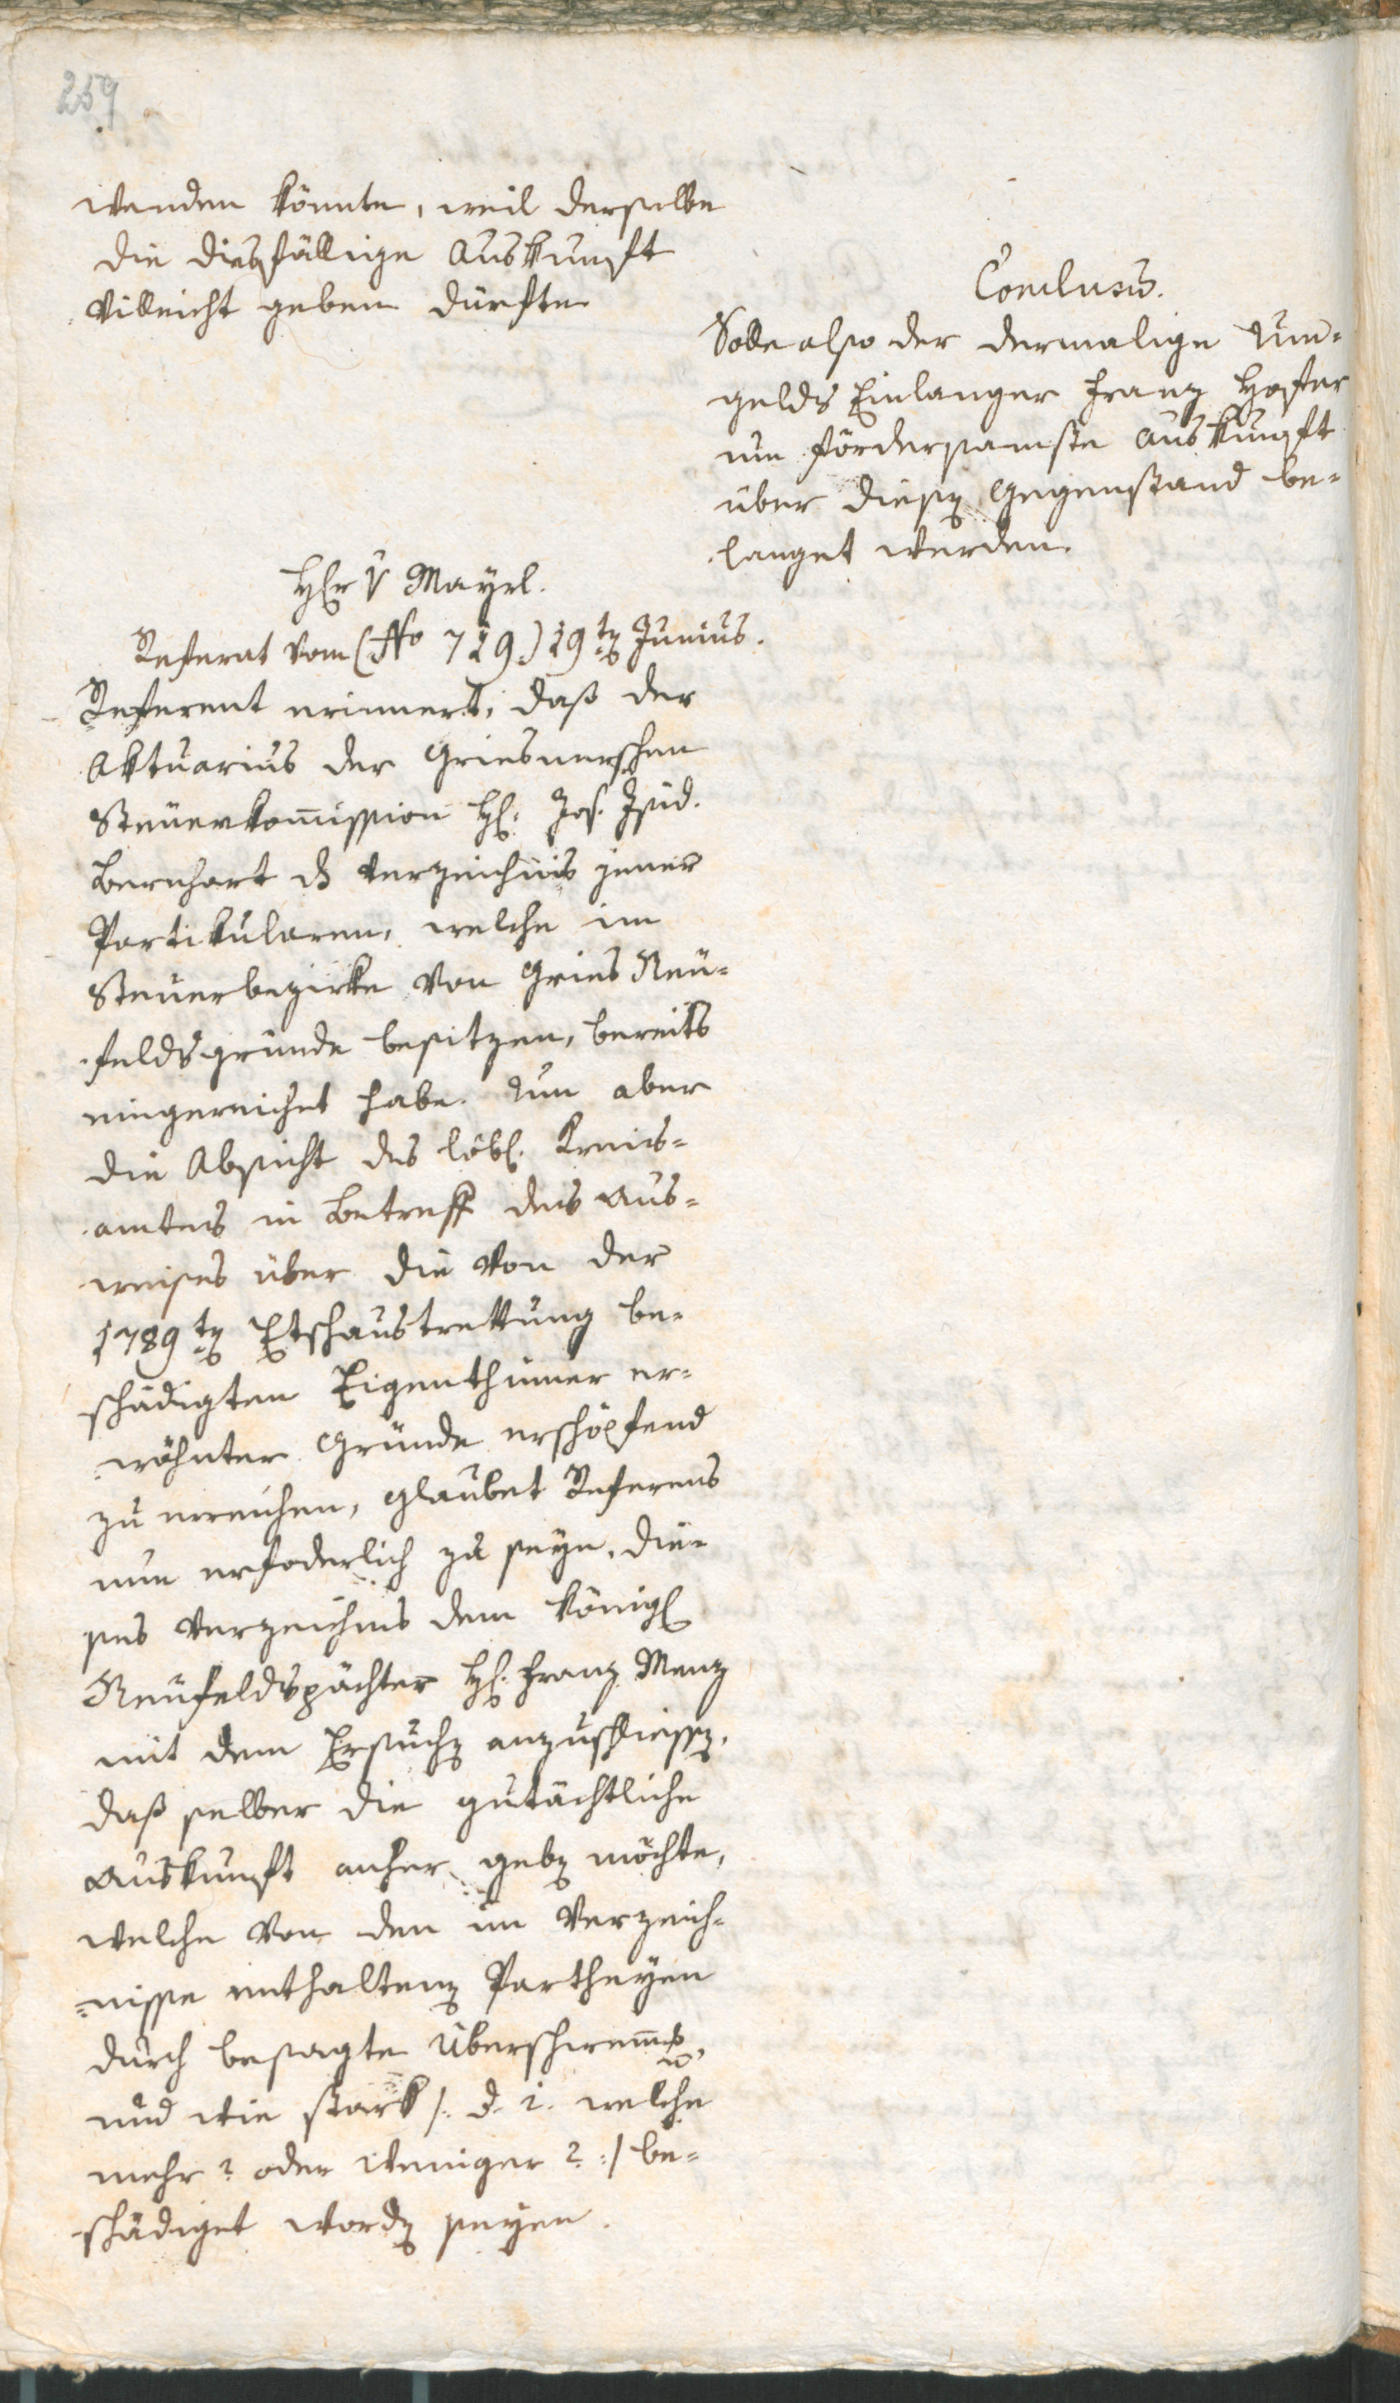 259
wenden könnte, weil derselbe
die diesfällige Auskunft
villeicht geben dürfte.
Conclusũ.
Solle also der dermalige Um-
gelds Einlanger Franz Hofer
um fördersamste Auskunft
über diesen Gegenstand be-
langet werden.
Hr v Mayrl.
Referat vom (No 719.) 19ten Junius.
Referent erinnert, daß der
Aktuarius der Griesnerschen
Steuerkom̃ission H. Jos. Isid.
Bernhart ds Verzeichnis jener
Partikularen, welche im
Steuerbezirke von Gries Neu-
feldsgründe besitzen, bereits
eingereichet habe. Um aber
die Absicht des löbl. Kreis-
amtes in Betreff des Aus-
weises über die von der
1789ten Etschaustrettung be-
schädigten Eigenthümer er-
wähnter Gründe erschöpfend
zu erreichen, glaubet Referens
nun erfoderlich zu seyn, die-
ses Verzeichnis dem königl
Neufeldspächter H. Franz Menz
mit dem Ersuchen anzuschliessen,
daß selber die gutächtliche
Auskunft anher geben möchte,
welche von den im Verzeich-
nisse enthaltenen Partheyen
durch besagte Überschwem̃g,
und wie stark /: d. i. welche
mehr? oder weniger? :/ be-
schädiget worden seyen.